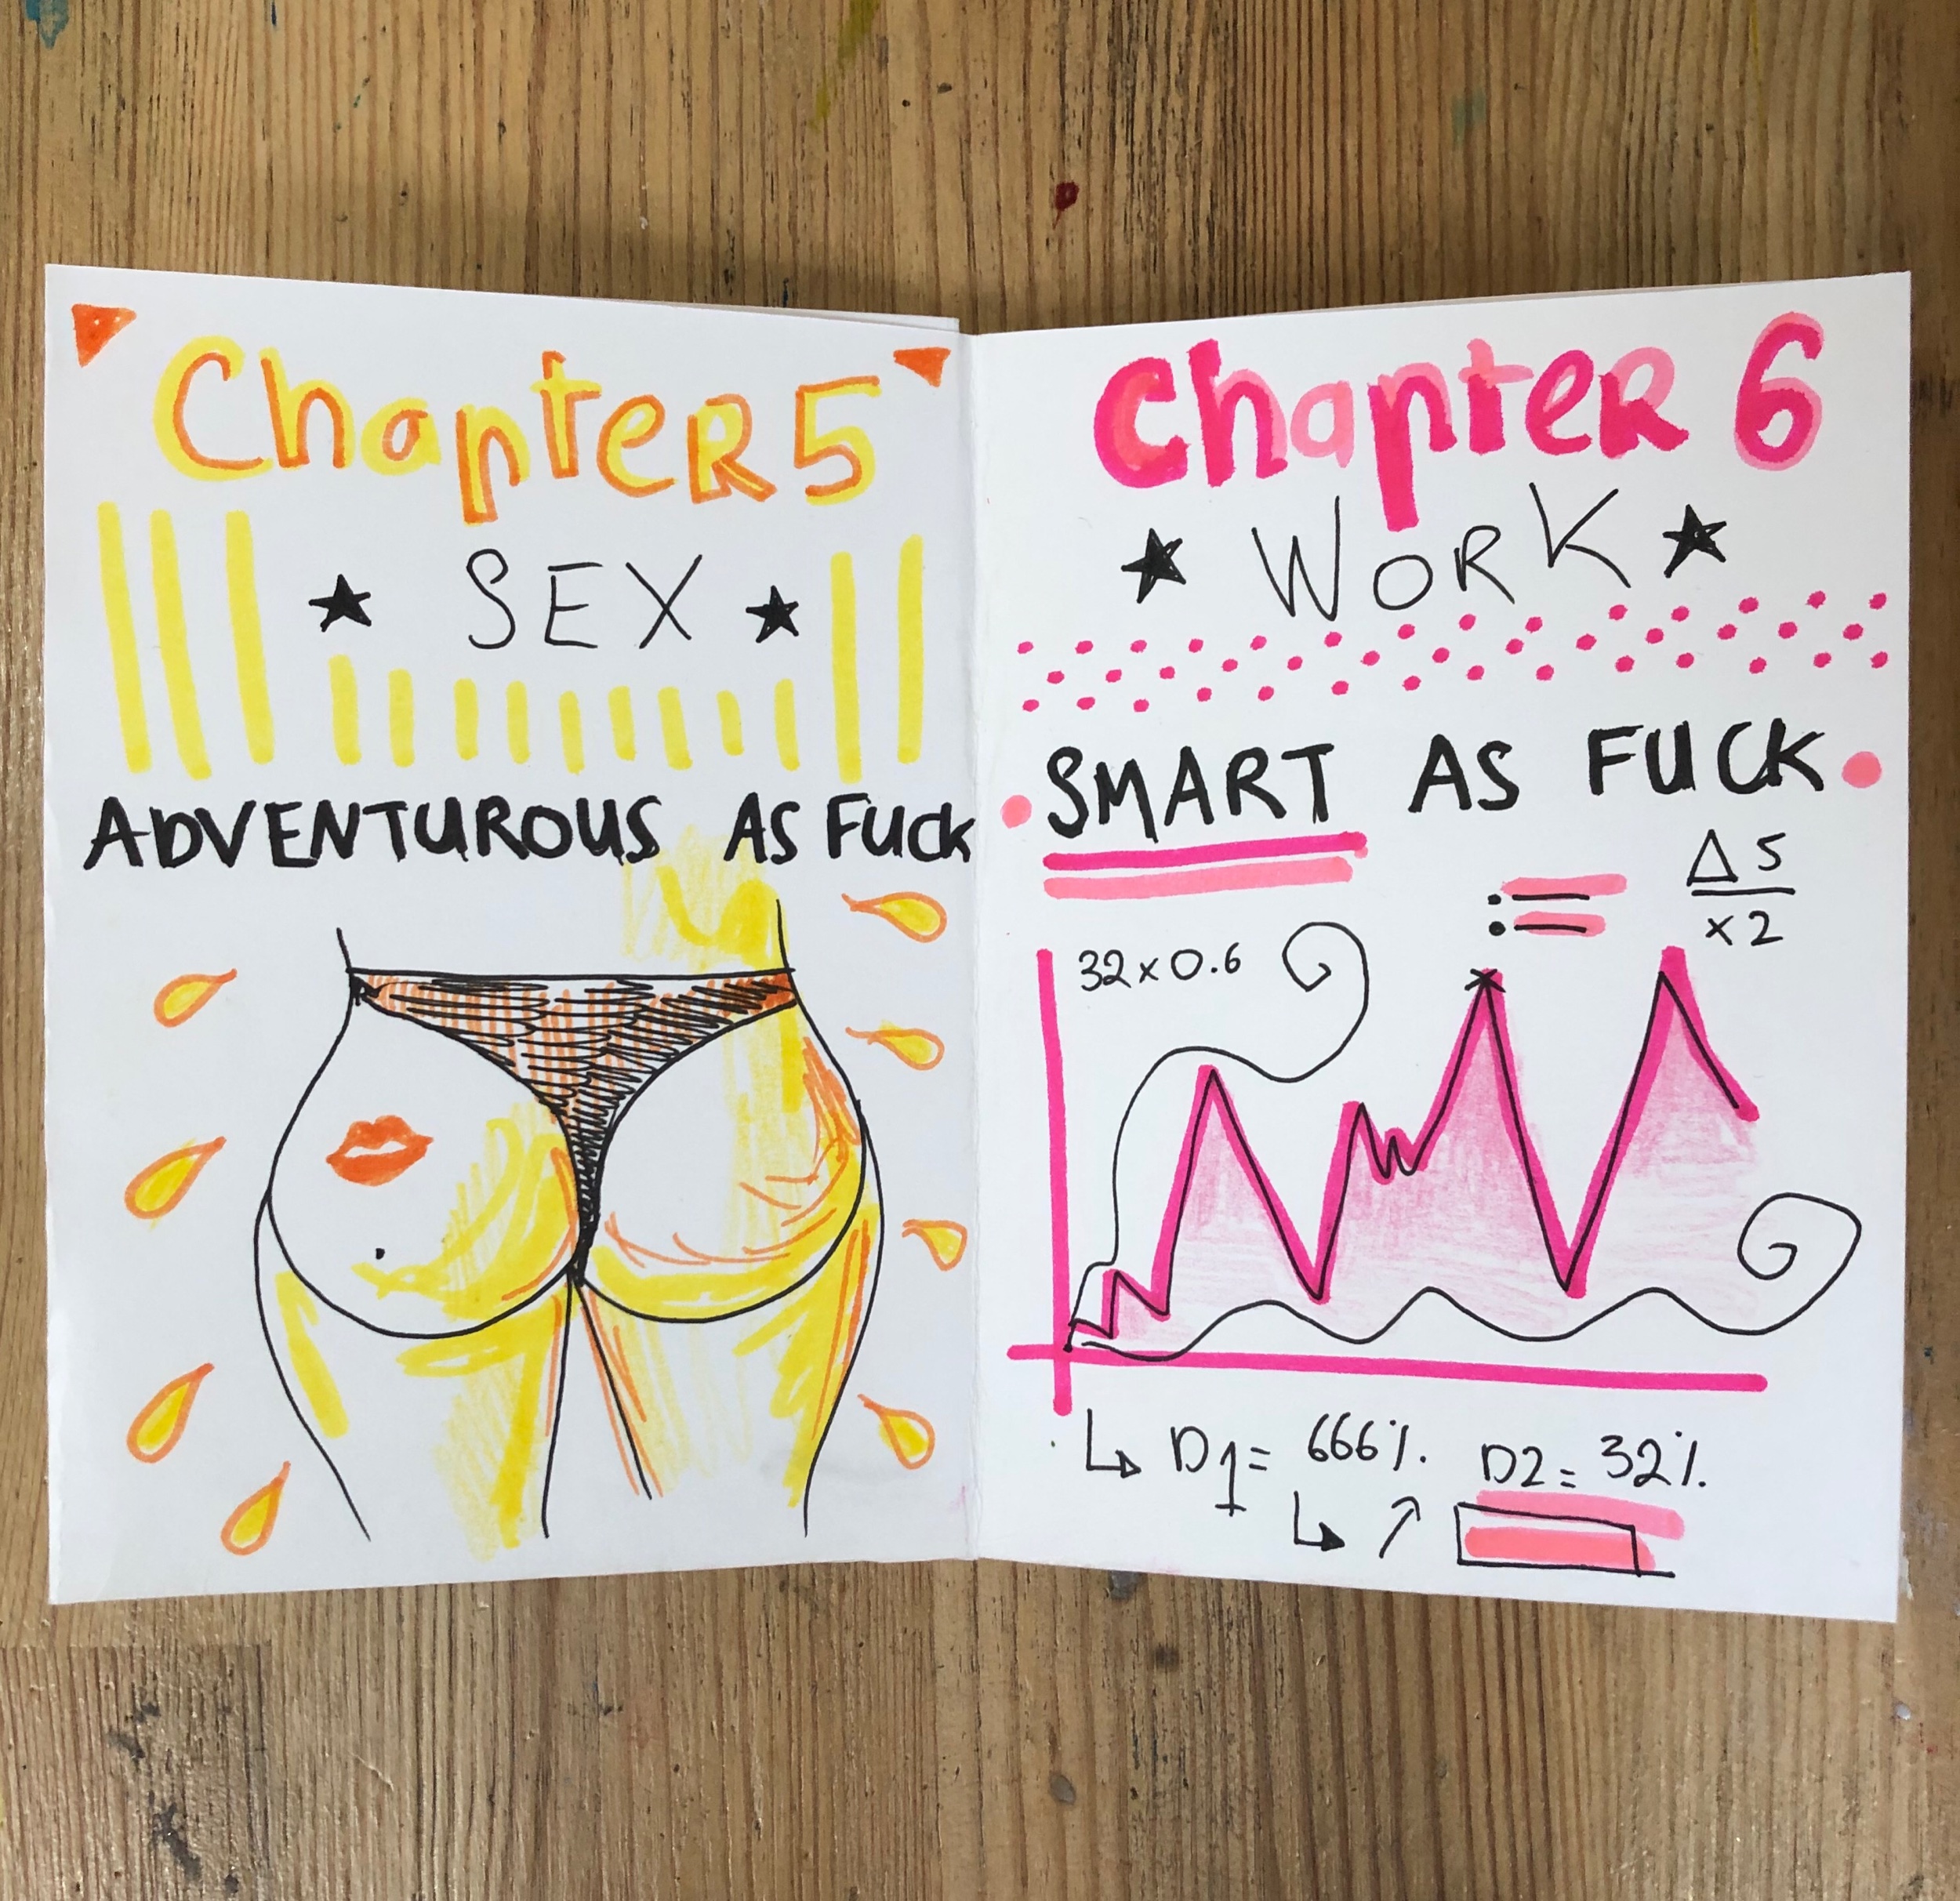 Chapter 5
SEX
ADVENTUROUS AS FUCK
Chapter 6
WORK
SMART AS FUCK
Δ5
x2
32 x 0.6
D1 = 666%. D2 = 32%.